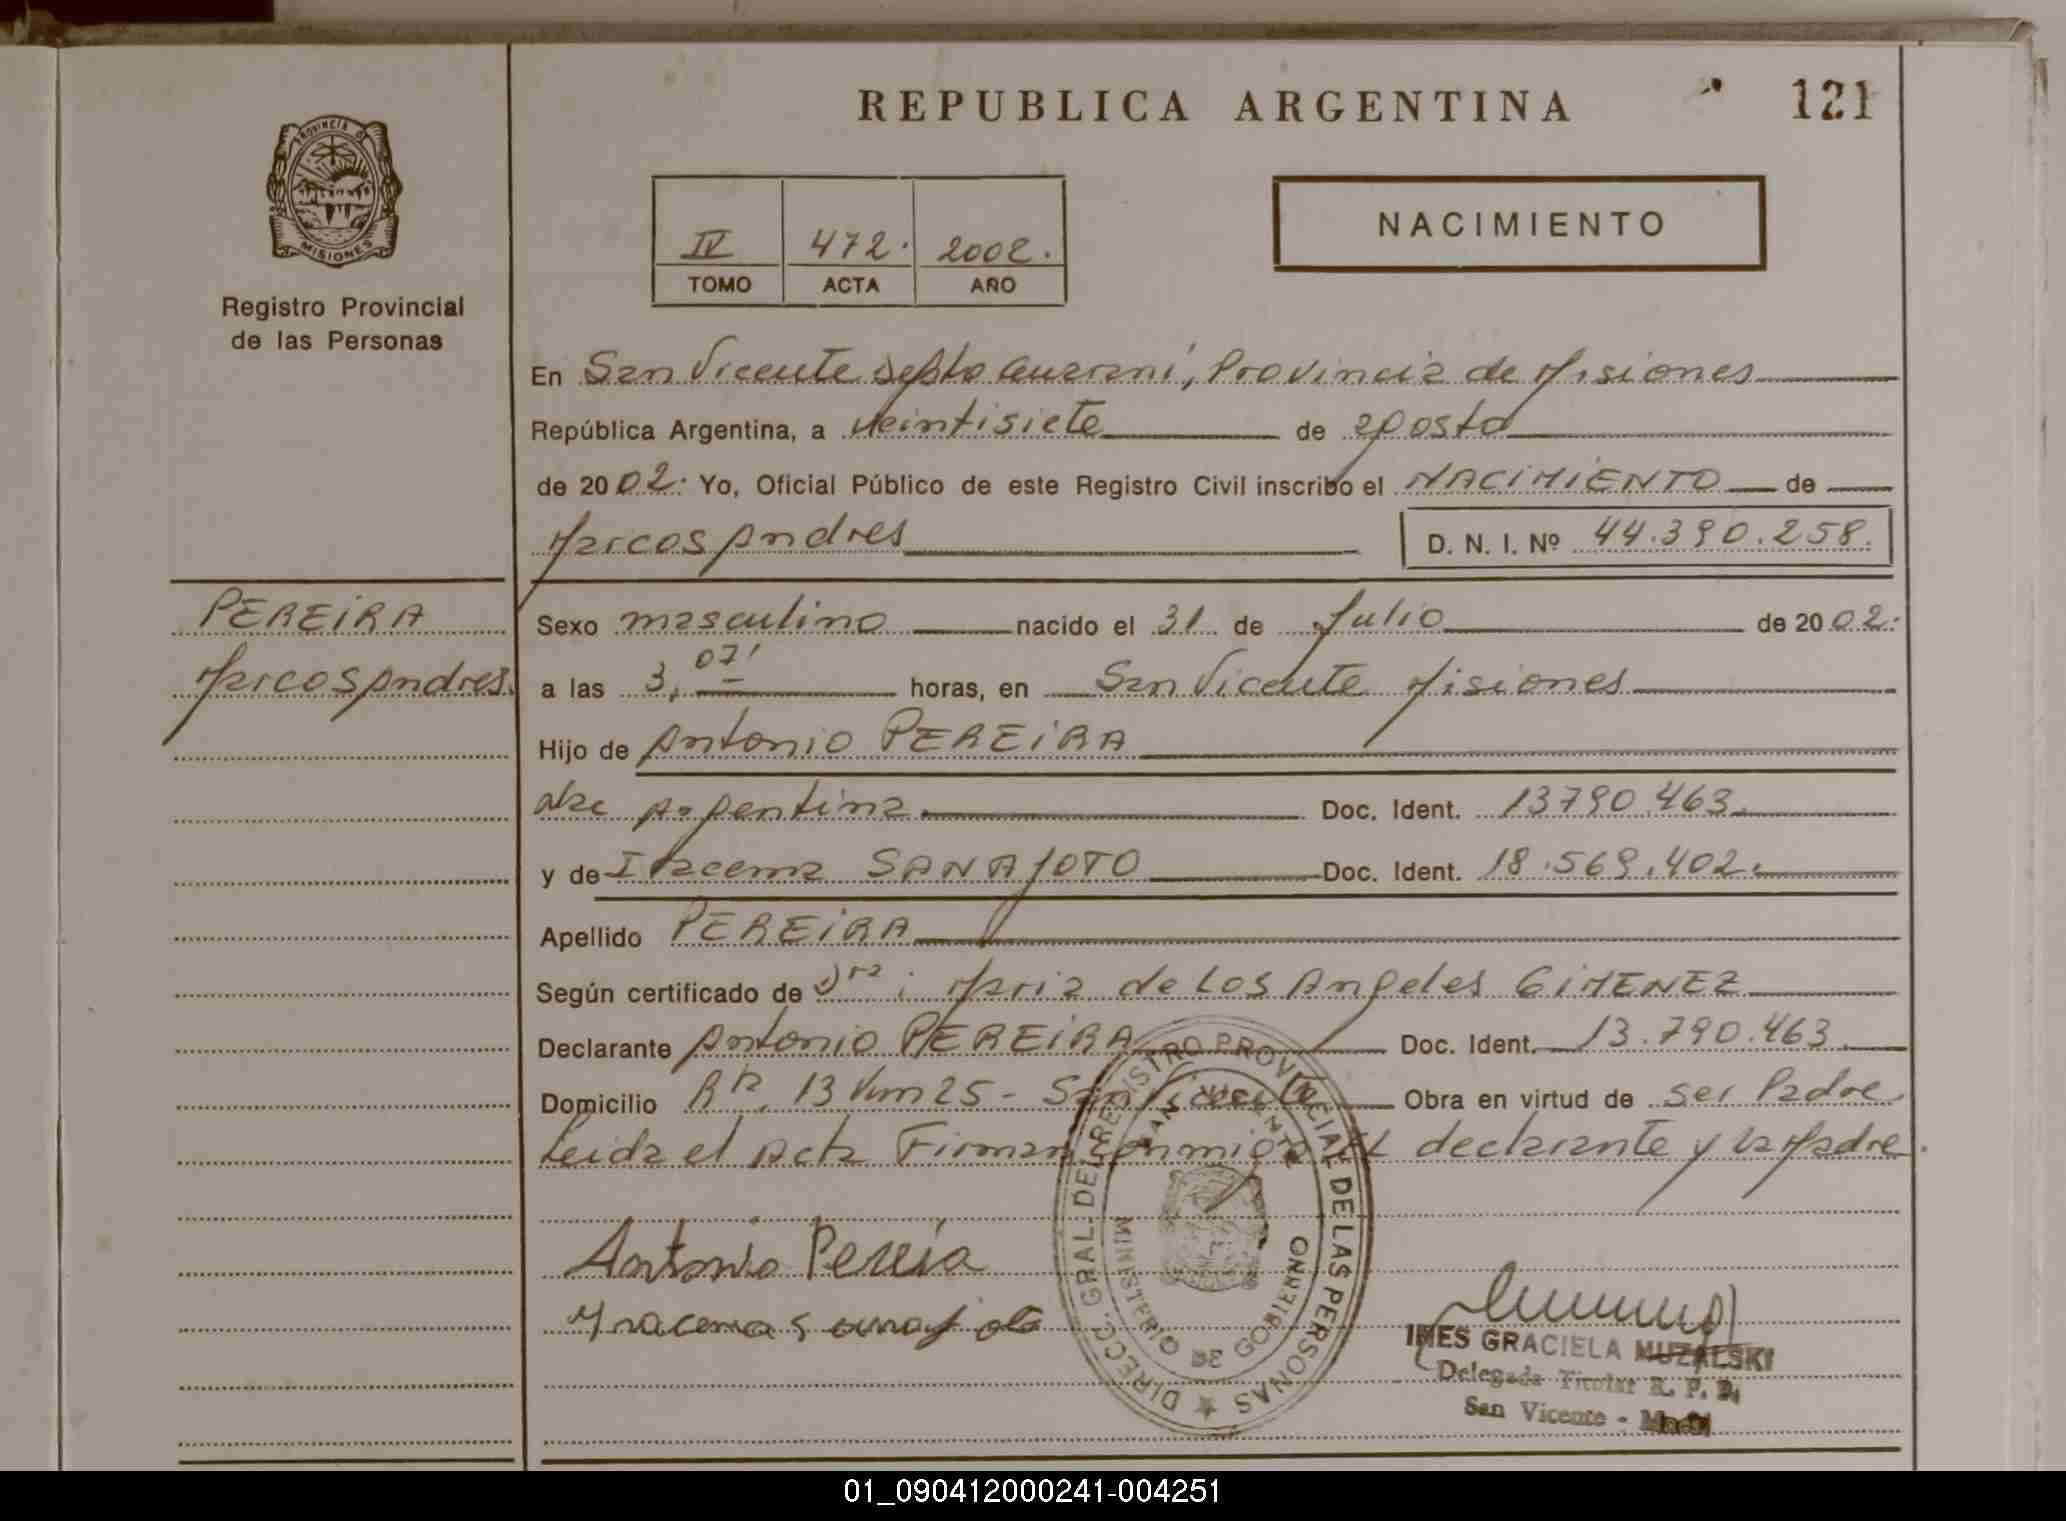 REPUBLICA ARGENTINA
121
PROVINCIA DE
MISIONES
Registro Provincial
de las Personas
IV 472. 2002.
TOMO ACTA AÑO
NACIMIENTO
En San Vicente depto Guarani, Provincia de Misiones
República Argentina, a veintisiete de agosto
de 2002. Yo, Oficial Público de este Registro Civil inscribo el NACIMIENTO de
Marcos Andres D. N. I. Nº 44.390.258.
PEREIRA
Marcos Andres.
Sexo masculino nacido el 31 de Julio de 2002.
a las 3,07' horas, en San Vicente Misiones
Hijo de Antonio PEREIRA
nac Argentina. Doc. Ident. 13790.463.
y de Iracema SANAJOTO Doc. Ident. 18.569.402.
Apellido PEREIRA
Según certificado de Dra: Maria de Los Angeles GIMENEZ
Declarante Antonio PEREIRA Doc. Ident. 13.790.463.
Domicilio Rta. 13 Km 25 - San Vicente Obra en virtud de ser Padre
Leida el Acta Firman conmigo el declarante y la Madre.
Antonio Pereira
Yracema Sanajoto
DIRECC. GRAL. DEL REGISTRO PROVINCIAL DE LAS PERSONAS
SAN VICENTE
MINISTERIO DE GOBIERNO
INES GRACIELA MUZALSKI
Delegada Titular R. P. P.
San Vicente - Mnes
01_090412000241-004251